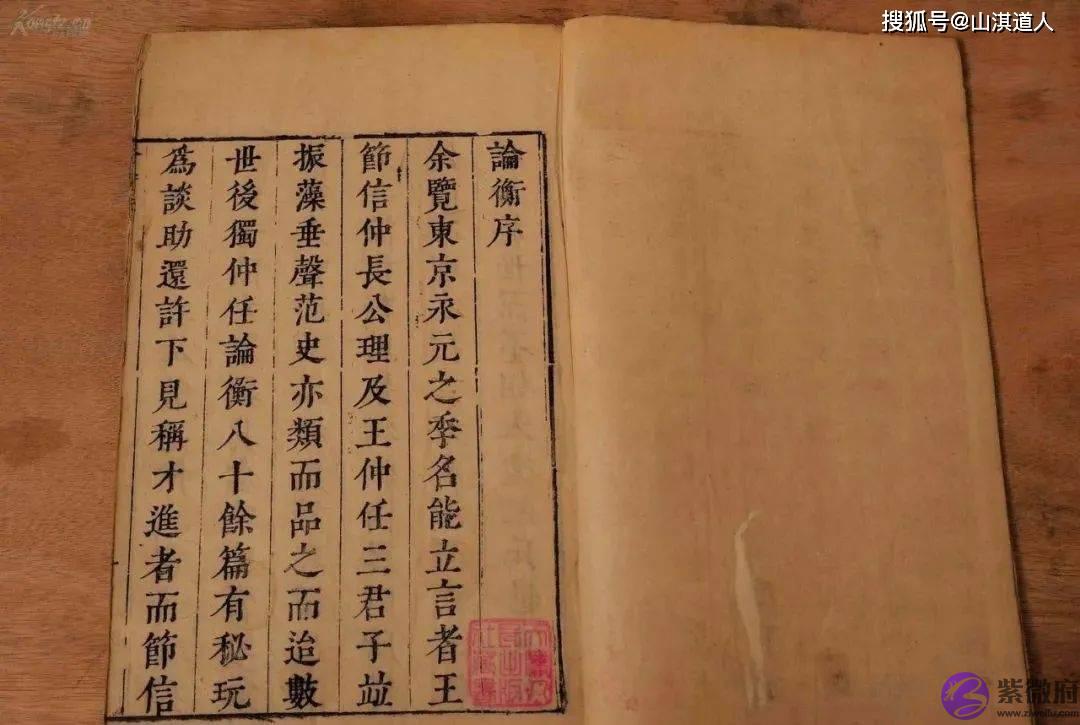 論衡序
余覽東京永元之季名能立言者王
節信仲長公理及王仲任三君子竝
振藻垂聲范史亦類而品之而迨數
世後獨仲任論衡八十餘篇有秘玩
爲談助還許下見稱才進者而節信
搜狐号@山淇道人
紫微府
www.ziweifu.com